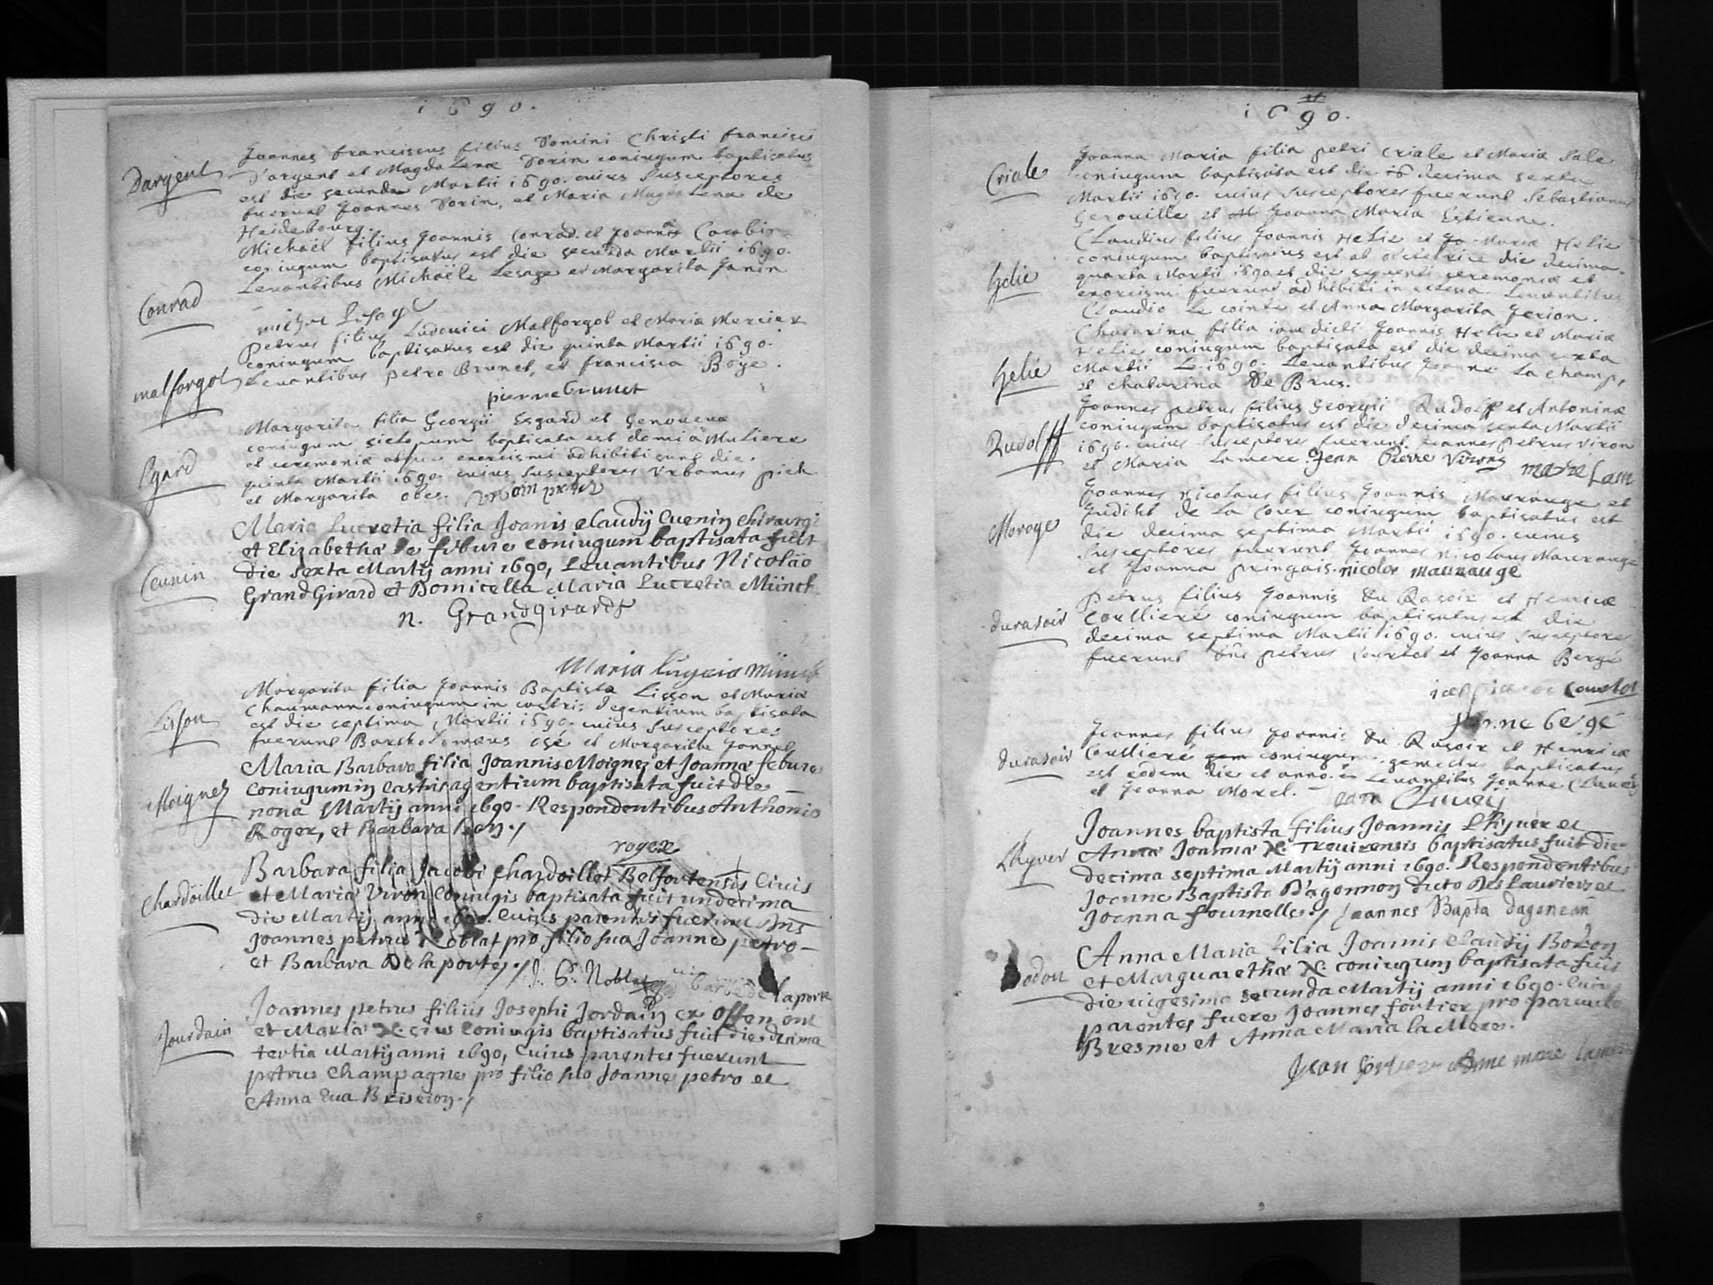 1690.
Dargent
Joannes franciscus filius Domini Christi francisci
D'argent et Magdalenae Vorin coniugum baptisatus
est die secunda Martii 1690. cuius Susceptores
fuerunt Joannes Vorin, et Maria Magdalena de
Heidebourg.
Conrad
Michaël filius Joannis Conrad et Joannae
coniugum baptisatus est die secunda Martii 1690.
Levantibus Michaële Lesage et Margarita Janin
malforgot
Petrus filius Ludovici Malforgot et Maria Mercier
coniugum baptisatus est die quinta Martii 1690.
Levantibus petro Brunet, et francisca Boye.
pierre brunet
Margarita filia Georgii Esgard et Genovevae
coniugum baptisata est domi a Muliere
et ceremoniae exorcismi adhibiti sunt die
quinta Martii 1690. cuius Susceptores Urbanus
et Margarita
Ceunin
Maria Lucretia filia Joanis Claudij Cuenin Chirurgi
et Elizabetha le febure coniugum baptisata fuit
die sexta Martij anni 1690, Levantibus Nicolao
GrandGirard et Domicella Maria Lucretia Münch
n. Grandgirardt
Maria Münch
Lisson
Margarita filia Joannis Baptista Lisson et Maria
Chaumann coniugum in castris degentium baptisata
est die septima Martii 1690. cuius Susceptores
fuerunt Bartholomaeus et Margarita
Moignez
Maria Barbara filia Joannis Moignez et Joanna febure
Coniugum in castris agentium baptisata fuit die
nona Martij anni 1690. Respondentibus Anthonio
Roger, et Barbara
roger
Chardoillet
Barbara filia Jacobi Chardoillet Belfortensis Civis
et Maria Viron Coniugis baptisata fuit undecima
die Martij anni 1690. Cuius parentes fuerunt Dns
Joannes petrus Noblat pro filio suo Joanne petro
et Barbara De la porte ./ J. P. Noblat barbe de laporte
Jourdain
Joannes petrus filius Josephi Jordain ex offemont
et Maria N. eius Coniugis baptisatus fuit die decima
tertia Martij anni 1690, Cuius parentes fuerunt
petrus Champagne pro filio suo Joanne petro et
Anna Eva
1690.
Criale
Joanna Maria filia petri Criale et Maria Sale
coniugum baptisata est die 16 decima sexta
Martii 1690. cuius Susceptores fuerunt Sebastianus
Gerouille et Joanna Maria Estienne.
Helie
Claudius filius Joannis Helie et Maria Helie
coniugum baptisatus est ab obstetrice die decima
quarta Martii 1690 et die sequenti ceremoniae et
exorcismi fuerunt adhibiti in ecclesia Levantibus
Claudio Le cointe et Anna Margarita Gerion.
Helie
Chatarina filia iam dicti Joannis Helie et Maria
Helie coniugum baptisata est die decima sexta
Martii 1690. Levantibus Joanne La champs
et chatarina de Brus.
Rudolff
Joannes petrus filius Georgii Rudolff et Antoninae
coniugum baptisatus est die decima sexta Martii
1690. cuius Susceptores fuerunt Joannes petrus Viron
et Maria Lamere. Jean Pierre Viron
Moroge
Joannes Nicolaus filius Joannis Mauraugé et
Judith de La Cour coniugum baptisatus est
die decima septima Martii 1690. cuius
Susceptores fuerunt Joannes Nicolaus Mauraugé
et Joanna nicolas maurauge
durasoir
Petrus filius Joannis du Rasoir et Henrica
Coulliere coniugum baptisatus est die
decima septima Martii 1690. cuius Susceptores
fuerunt Dns petrus Courtot et Joanna Bergé
Courtot
Jenne bergé
durasoir
Joannes filius Joannis du Rasoir et Henrica
Coulliere coniugum gemellus baptisatus
est eodem die et anno Levantibus Joanne
et Joanna Morel.
Lhyver
Joannes baptista filius Joannis Lhyver et
Anna Joanna N. Trevirensis baptisatus fuit die
decima septima Martij anni 1690. Respondentibus
Joanne Baptista Dagonnon dicto Des Lauriers et
Joanna fournelle ./ Joannes Bapta dagonnon
Anna Maria filia Joannis Claudij Bodon
et Marguaretha N. coniugum baptisata fuit
die vigesima secunda Martij anni 1690. Cuius
parentes fuere Joannes fortier pro parvulo
Bresme et Anna Maria la Mere.
Jean fortier Anne marie lamere